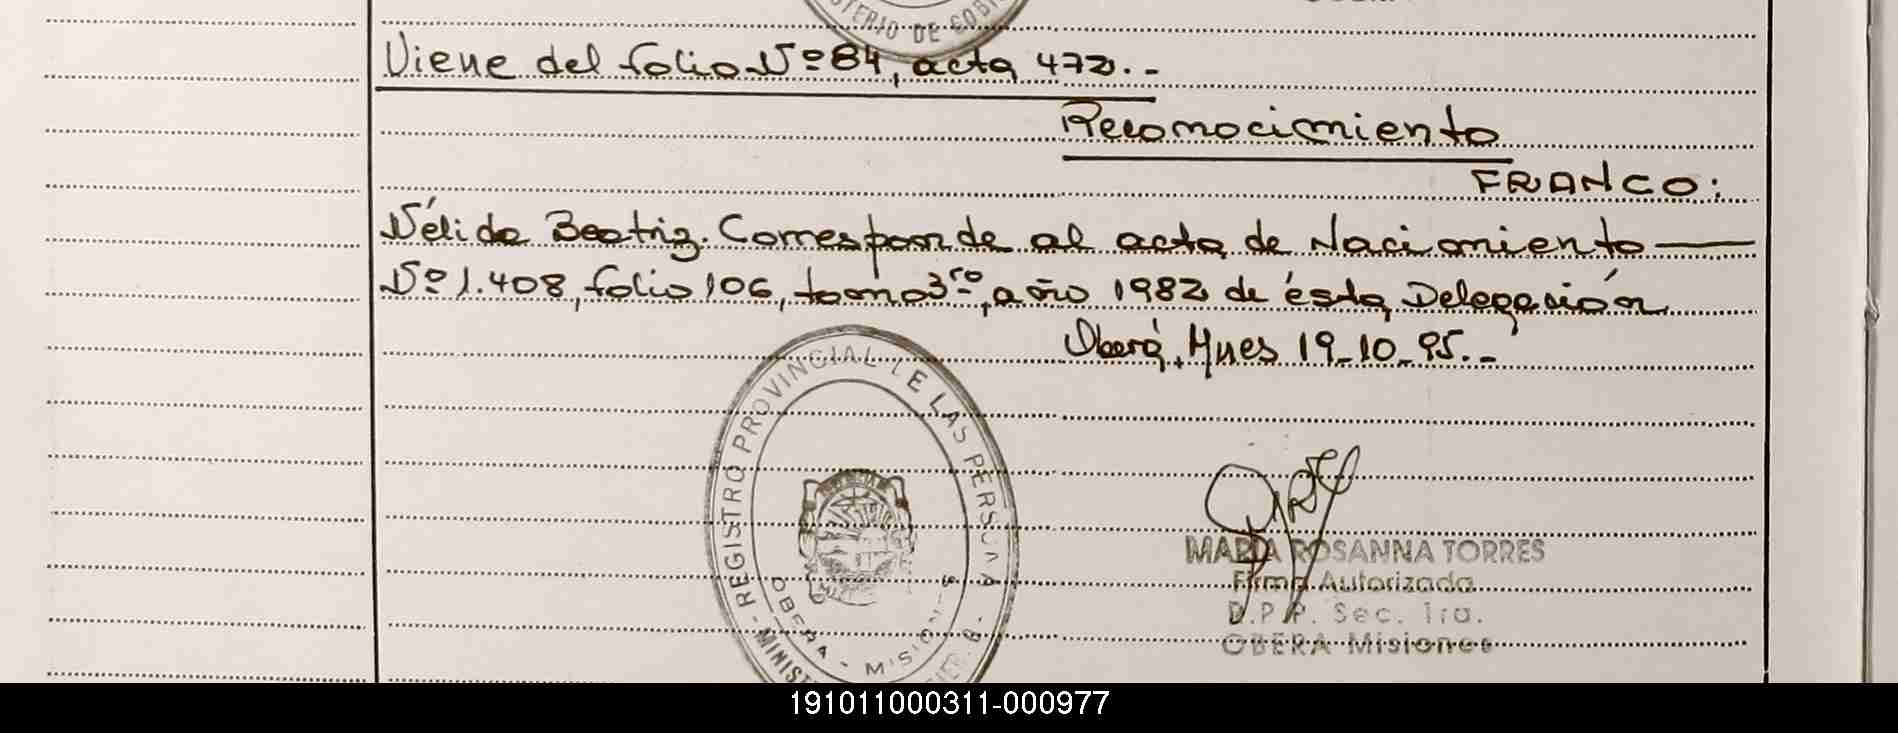 STERIO DE GOBI
Viene del folio Nº 84, acta 472.-
Reconocimiento
FRANCO:
Nélida Beatriz. Corresponde al acta de Nacimiento
Nº 1.408, folio 106, tomo 3ro, año 1982 de ésta Delegación
Oberá, Mnes 19-10-95.-
REGISTRO PROVINCIAL DE LAS PERSONAS
OBERA - MISIONES
MINIST
MARIA ROSANNA TORRES
Firma Autorizada
D.P.P. Sec. 1ra.
OBERA Misiones
191011000311-000977